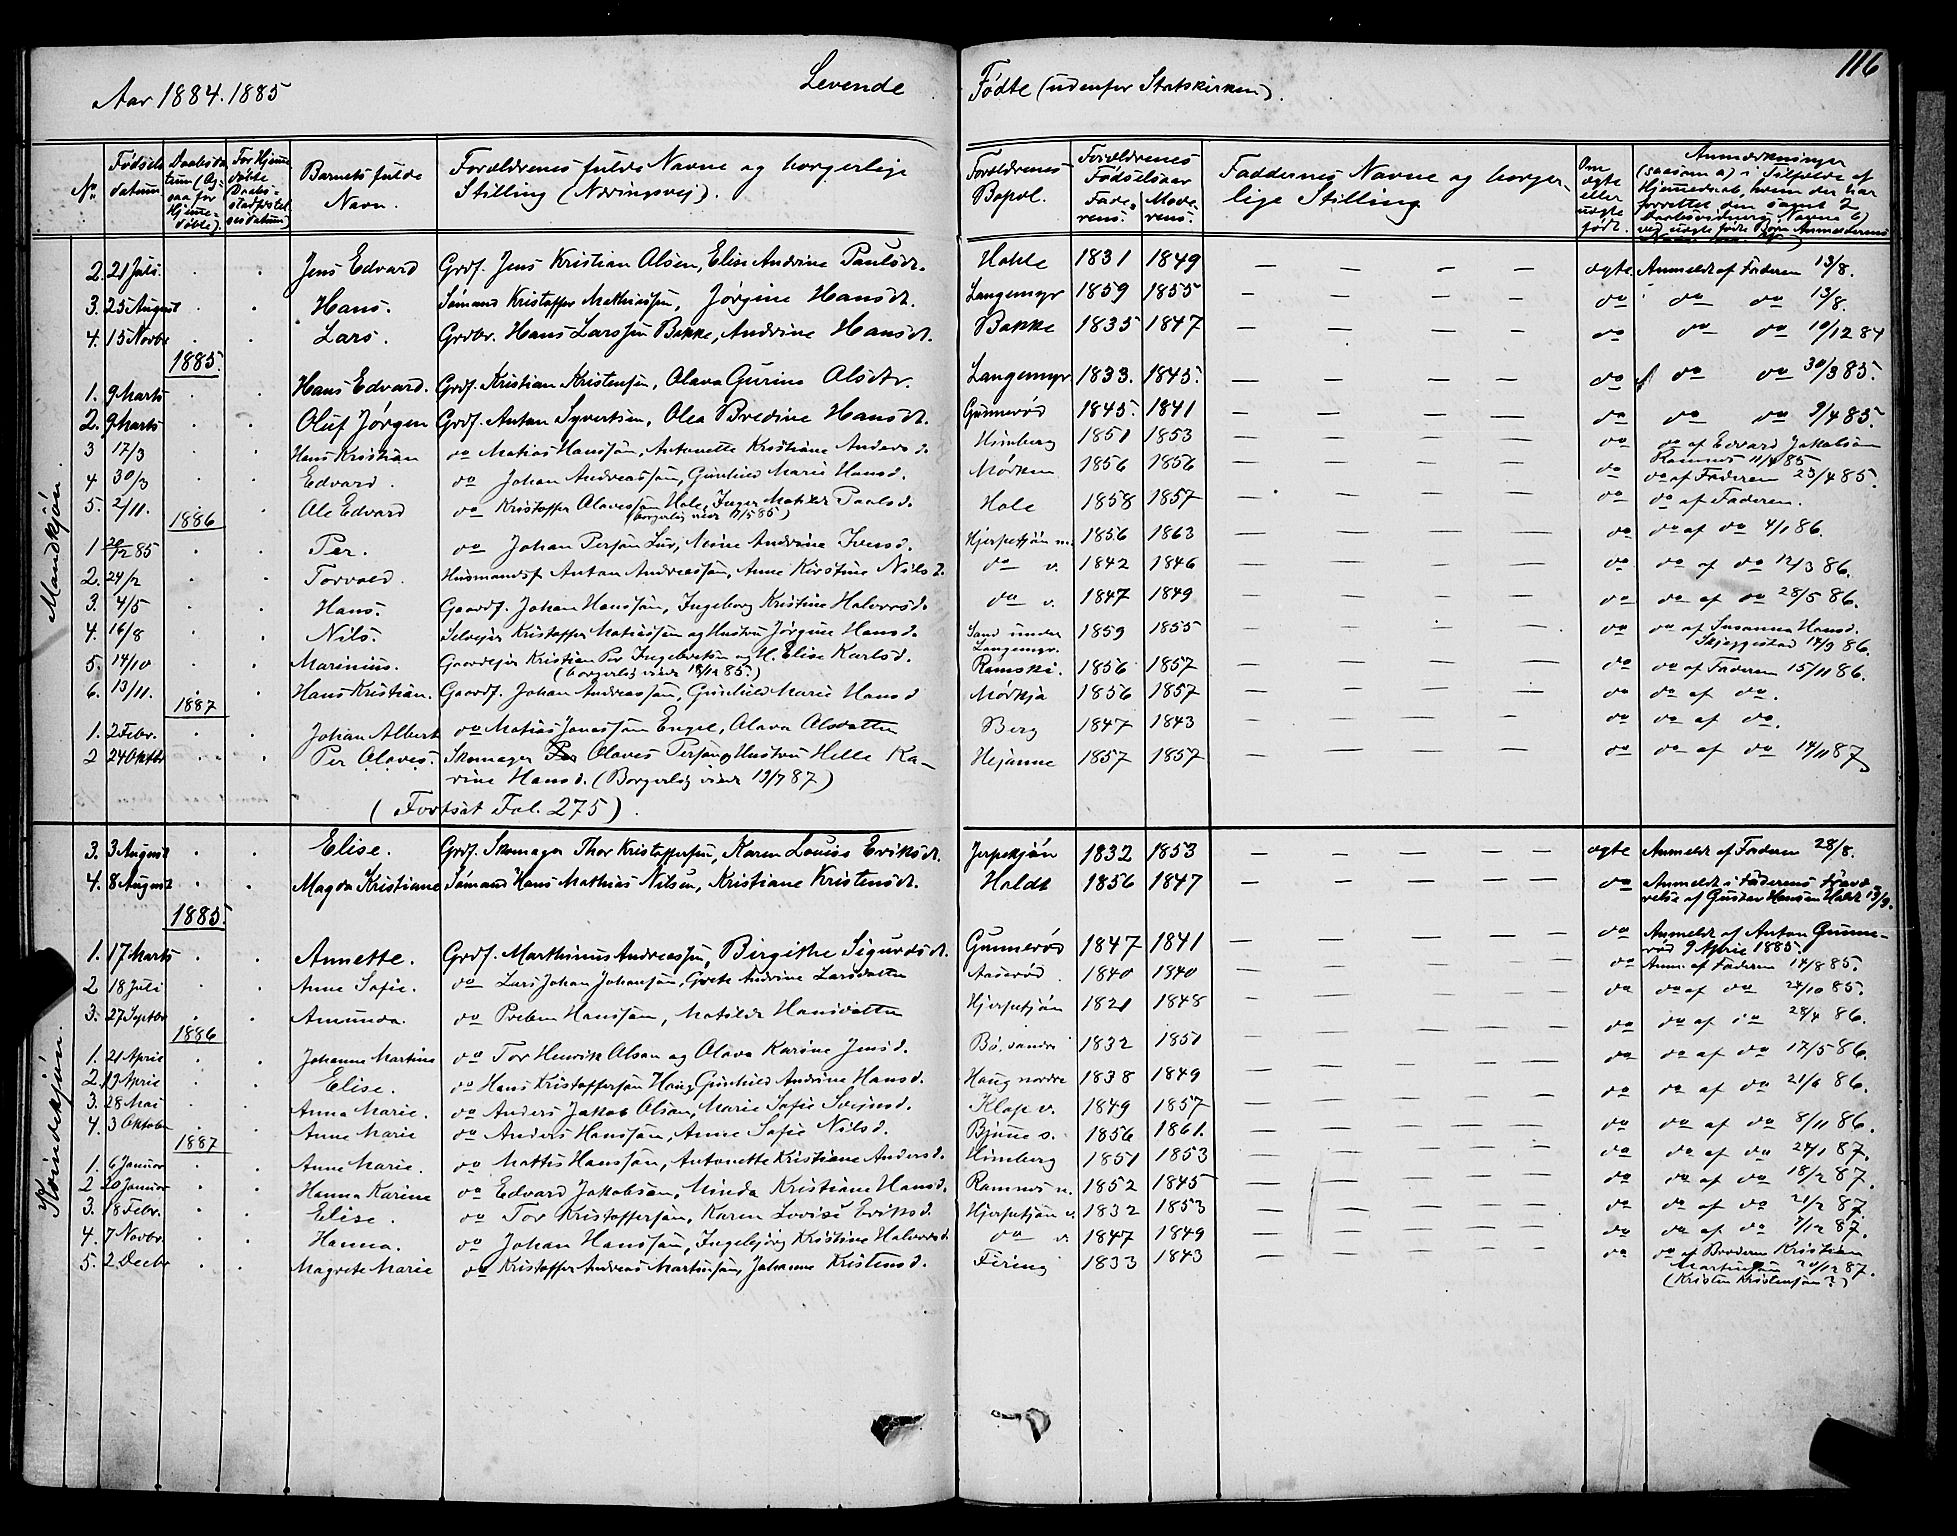 116
Aar 1884.1885 Levende Fødte (udenfor Statskirken).
No. Fødsels datum Daabsda tum (Og- saa for Hjemme- døbte). For Hjemme døbte Daabs- stadfæstel sesdatum) Barnets fulde Navn. Forældrenes fulde Navne og borgerlige Stilling (Næringsvej). Forældrenes Bopæl. Forældrenes Fødselsaar Fade- rens. Mode- rens. Faddernes Navne og borger- lige Stilling. Om ægte eller uægte født. Anmærkninger
Mandkjøn.
2. 21 Juli Jens Edvard Grdf. Jens Kristian Olsen, Elise Andrine Paulsdt. Hohle 1831 1849 — — — — ægte Anmeldt af Faderen 13/8.
3. 25 August Hans. Sømand Kristoffer Mathiassen, Jørgine Hansdt. Langemyr 1859 1855 — — — — do do do 13/8.
4. 15 Novbr Lars. Grdbr. Hans Larssen Bakke, Andrine Hansdt. Bakke 1835 1847 — — — — do do do 10/12 84
1885.
1. 9 Marts Hans Edvard. Grdf. Kristian Kristensen, Olava Gurine Olsdtr. Langemyr 1833. 1845. — — — — do do do 30/3 85.
2. 9 Marts Oluf Jørgen Grdf. Anton Syvertsen, Olea Bredine Hansdt. Gunnerød 1845. 1841 — — — — do do do 9/4 85.
3 17/3 Hans Kristian do Matias Hanssøn, Antonette Kristiane Andersd. Himberg 1851 1853 — — — — do do af Edvard Jakobsøn
Ramnes 11/4 85
4 30/3 Edvard. do Johan Andreassøn, Gunhild Marie Hansd. Mørken 1856 1856 — — — — do do af Faderen 23/4 85.
5. 2/11. Ole Edvard do Kristoffer Olavessøn Hole, Inger Matilde Paulsd. Hole 1858 1857 — — — — do do af Faderen.
(borgerlig viede 17/5 85)
1886
1 26/12 85 Per. do Johan Persøn Lur, Mine Andrine Ivensd. Hjerpekjøn n. 1856 1863 — — — — do do af do 4/1 86.
2. 24/2 Torvald. Husmandsf. Anton Andreassøn, Anne Kirstine Nilsd. do v. 1842 1846 — — — — do do af do 12/3 86.
3. 4/5 Hans. Gaardf. Johan Hanssøn, Ingeborg Kristine Halvorsd. do v. 1847 1849 — — — — do do af do 28/5 86.
4. 16/8 Nils. Selvejer Kristoffer Matiassøn og Hustru Jørgine Hansd. Sand under Langemyr. 1859 1855 — — — — do do af Susanna Hansd.
Skjeggestad 14/9 86.
5. 14/10 Marinius. Gaardejer Kristian Per Ingebretsøn og H. Elise Karlsd. Ramski. 1856 1857 — — — — do do af Faderen 15/11 86.
(borgerlig viede 18/12 85.)
6. 13/11. Hans Kristian. Gaardf. Johan Andreassøn, Gunhild Marie Hansd Mørkja 1856 1857 — — — — do do af do.
1887
1. 2 Febr. Johan Albert do Matias Jonassøn Engel, Olava Olsdatter Berg 1847 1843 — — — — do do af do.
2 24 Oktbr Per Olaves. Skomager Per Olaves Persøn og Hustru Helle Ka- Hejanne 1857 1857 — — — — do do af do 14/11 87
rine Hansd. (Borgerlig viede 13/7 87)
(Fortsat Fol. 275).
Kvindekjøn.
3. 3 August Elise. Grdf. Skomager Thor Kristoffersen, Karen Louise Eriksdt. Jerpekjøn 1832 1853 — — — — ægte Anmeldt af Faderen 28/8.
4. 8 August Magda Kristiane Sømand Hans Mathias Nilsen, Kristiane Kristensdt. Holdt 1856 1847 — — — — do Anmeldt i Faderens Fravæ
relse af Gustav Hansen Holdt 13/9.
1885.
1. 17 Marts Annette. Grdf. Marthinius Andreassen, Birgithe Sigurdsdt. Gunnerød 1847 1841 — — — — do Anmeldt af Anton Gunne-
rød 9 April 1885.
2 18 Juli Anne Sofie. do Lars Johan Johansøn, Grete Andrine Larsdatter Aaserød 1840 1840 — — — — do Anm. af Faderen 14/8 85.
3. 27 Septbr Amunda. do Preben Hanssøn, Matilde Hansdatter Hjerpekjøn 1821 1848 — — — — do do af do 24/10 85.
1886
1. 21 April Johanne Martine do Tor Henrik Olsøn og Olava Karine Jensd. Bø, søndre 1832 1851 — — — — do do af do 28/4 86.
2. 19 April Elise. do Hans Kristoffersøn Haug, Gunhild Andrine Hansd. Haug nordre 1838 1849 — — — — do do af do 17/5 86.
3. 28 Mai Anna Marie. do Anders Jakob Olsøn, Marie Sofie Svensd. Klop v. 1849 1857 — — — — do do af do 21/6 86.
4. 3 Oktober Anne Marie do Anders Hanssøn, Anne Sofie Nilsd. Bjune s. 1856 1861. — — — — do do af do 8/11 86.
1887
1. 6 Januar Anne Marie. do Mattis Hanssøn, Antonette Kristiane Andersd. Himberg 1851 1853 — — — — do do af do 24/1 87.
2 20 Januar Hanna Karine do Edvard Jakobsøn, Minda Kristiane Hansd. Ramnes n. 1852 1845 — — — — do do af do 18/2 87.
3. 18 Febr. Elise. do Tor Kristoffersøn, Karen Lovise Eriksd. Hjerpekjøn v. 1832 1853 — — — — do do af do 21/2 87.
4. 7 Novbr. Hanna. do Johan Hanssøn, Ingebjørg Kristine Halvorsd. do v. 1847 1849 — — — — do do af do 7/12 87.
5. 2 Decbr Magrete Marie do Kristoffer Andreas Martinsøn, Johanne Kristensd. Firing 1833 1843 — — — — do do af Broderen Kristian
Martinsøn 20/12 87.
(Kristen Kristensøn?)